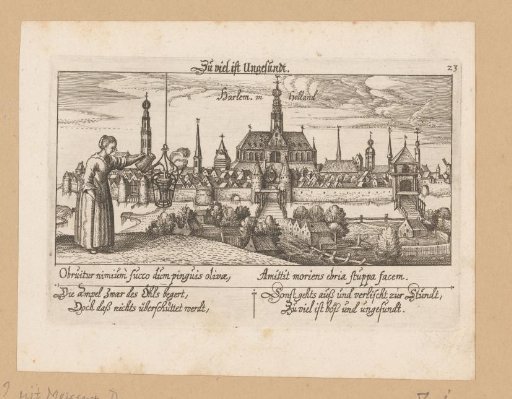 Zu viel ist Ungesundt.
23
Harlem. in Holland
Obruitur nimium succo dum pinguis olivæ, Amittit moriens ebria stuppa facem.
Die ampel zwar des Öhls begert,
Doch daß nichts überschüttet werdt,
Sonst gehts auß und verlischt zur Stundt,
Zu viel ist böß und ungesundt.